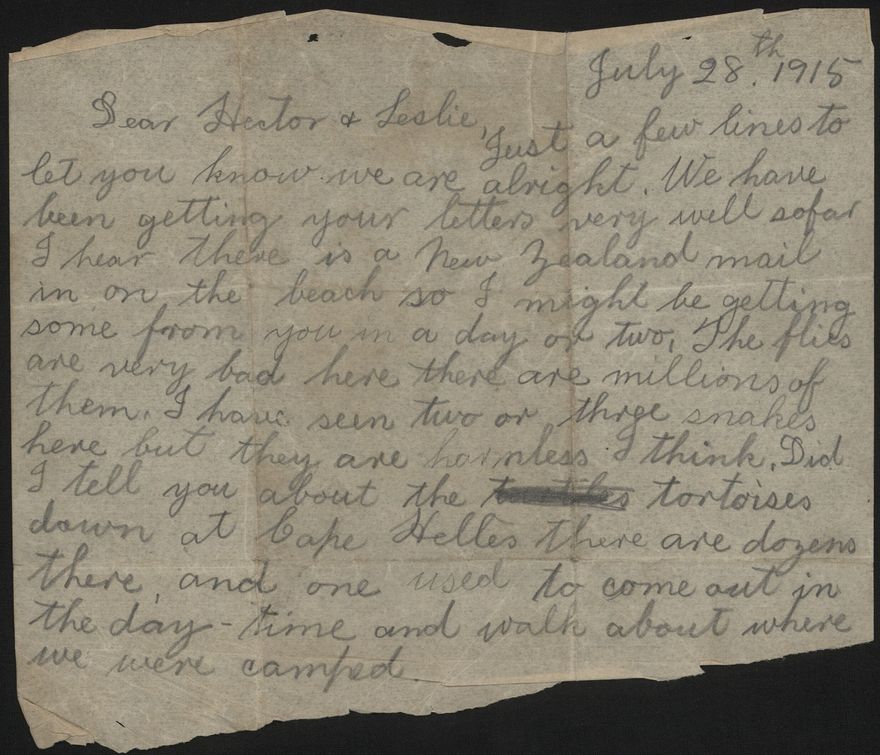 July 28.th 1915
Dear Hector & Leslie,
Just a few lines to
let you know we are alright. We have
been getting your letters very well sofar
I hear there is a New Zealand mail
in on the beach so I might be getting
some from you in a day or two. The flies
are very bad here there are millions of
them. I have seen two or three snakes
here but they are harmless I think. Did
I tell you about the tortoises
down at Cape Helles there are dozens
there, and one used to come out in
the day-time and walk about where
we were camped.